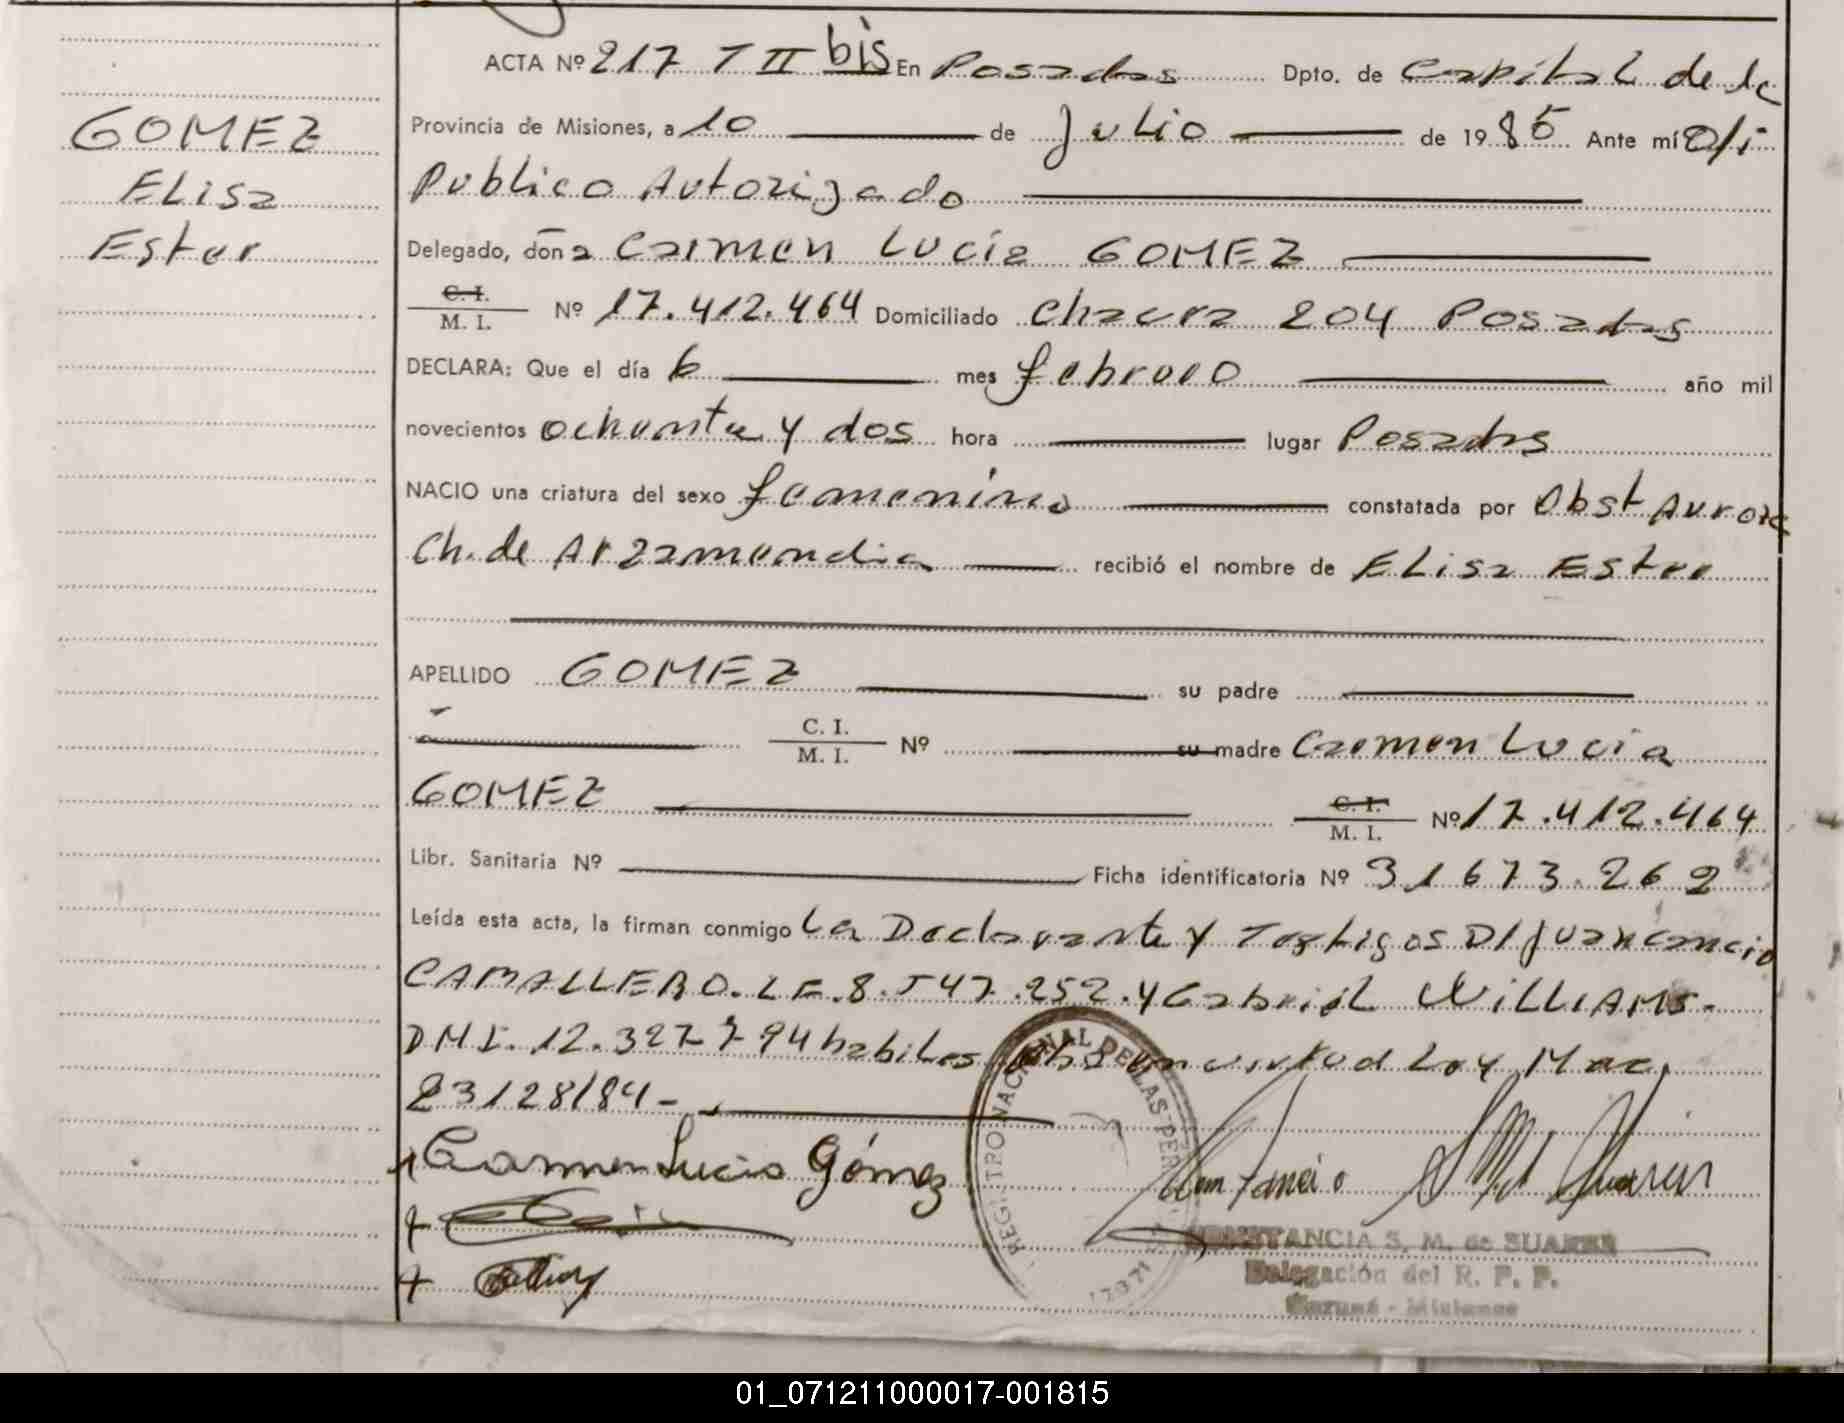 GOMEZ
Elisa
Ester
ACTA Nº 217 T II bis En Posadas Dpto. de Capital de la
Provincia de Misiones, a 10 de Julio de 1985 Ante mí Of.
Publico Autorizado
Delegado, doña Carmen Lucia GOMEZ
C. I.
M. I. Nº 17.412.464 Domiciliado Chacra 204 Posadas
DECLARA: Que el día 6 mes febrero año mil
novecientos ochenta y dos hora lugar Posadas
NACIO una criatura del sexo femenino constatada por Obst Aurora
Ch. de Arzamendia recibió el nombre de Elisa Ester
APELLIDO GOMEZ su padre
C. I.
M. I. Nº su madre Carmen Lucia
GOMEZ C. I.
M. I. Nº 17.412.464
Libr. Sanitaria Nº Ficha identificatoria Nº 31673.262
Leída esta acta, la firman conmigo La Declarante y Testigos D/Juan Cancio
CABALLERO. LE. 8.547.252. y Gabriel WILLIAMS.
DMI. 12.327794 habiles en virtud Ley Nac.
23128/84-
Carmen Lucia Gómez
REGISTRO NACIONAL DE LAS PER
CONSTANCIA S. M. de SUAREZ
Delegación del R. P. P.